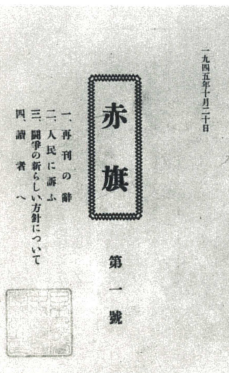 一九四五年十月二十日
赤旗
第一號
一、再刊の辭
二、人民に訴ふ
三、鬪爭の新らしい方針について
四、讀者へ